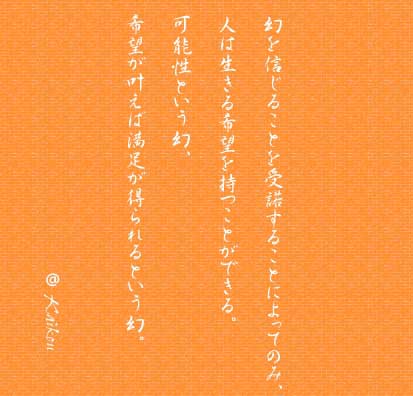 幻を信じることを受諾することによってのみ、
人は生きる希望を持つことができる。
可能性という幻、
希望が叶えば満足が得られるという幻。
@ Kaikou